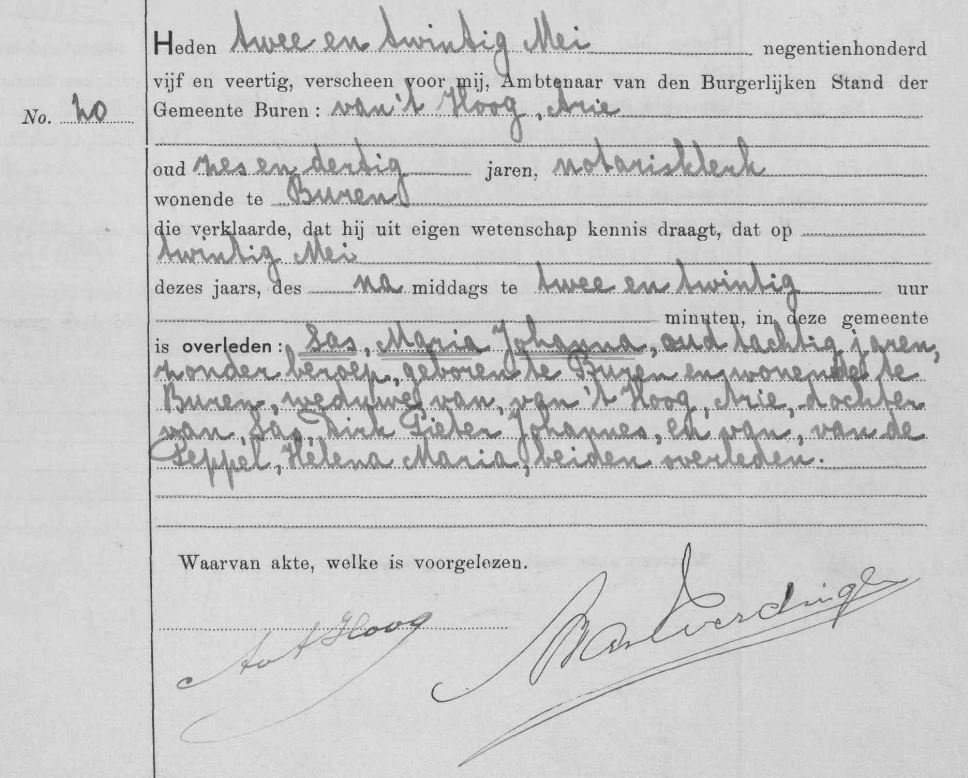 Heden twee en twintig Mei negentienhonderd
vijf en veertig, verscheen voor mij, Ambtenaar van den Burgerlijken Stand der
No. 20 Gemeente Buren : van 't Hoog, Arie
oud zes en dertig jaren, notarisklerk
wonende te Buren
die verklaarde, dat hij uit eigen wetenschap kennis draagt, dat op
twintig Mei
dezes jaars, des na middags te twee en twintig uur
minuten, in deze gemeente
is overleden : Sas, Maria Johanna, oud tachtig jaren,
zonder beroep, geboren te Buren en wonende te
Buren, weduwe van, van 't Hoog, Arie, dochter
van, Sas, Dirk Pieter Johannes, en van, van de
Peppel, Helena Maria, beiden overleden.
Waarvan akte, welke is voorgelezen.
Hoog